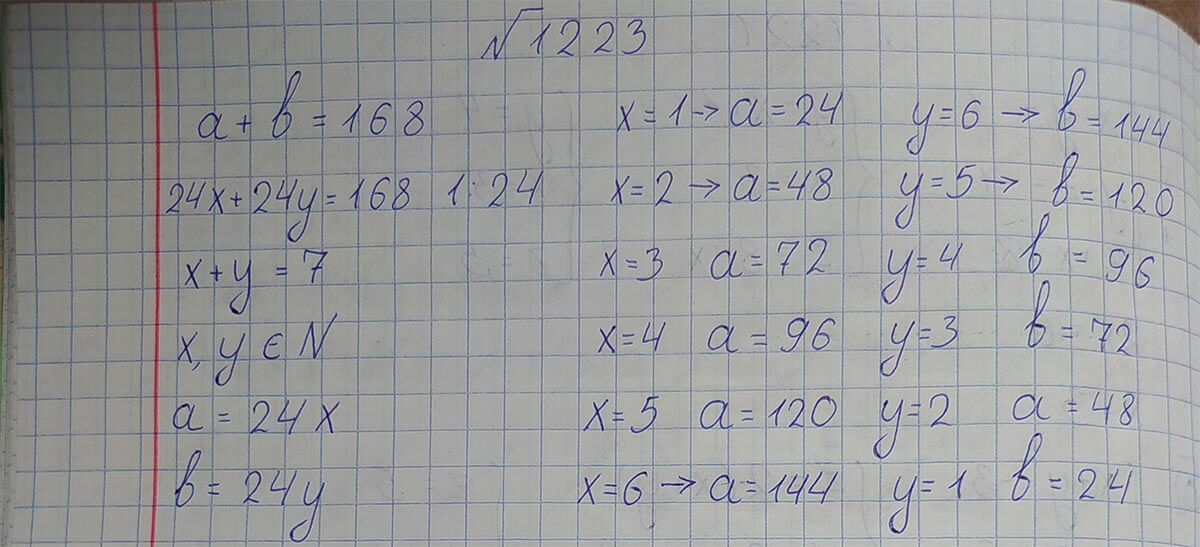 № 1223
a + b = 168
24x + 24y = 168 |: 24
x + y = 7
x, y ∈ N
a = 24x
b = 24y
x = 1 → a = 24 y = 6 → b = 144
x = 2 → a = 48 y = 5 → b = 120
x = 3 a = 72 y = 4 b = 96
x = 4 a = 96 y = 3 b = 72
x = 5 a = 120 y = 2 a = 48
x = 6 → a = 144 y = 1 b = 24